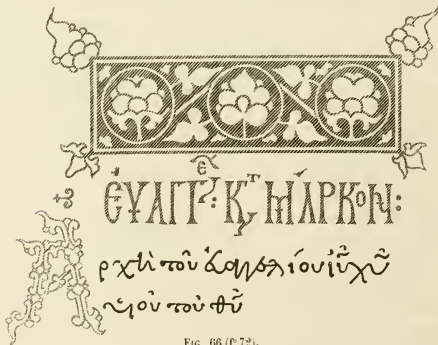 ΕΥΑΓΓ: Κτ ΜΑΡΚΟΝ:
Ἀρχὴ τοῦ εὐαγγελίου ἰῦ χῦ
υἱοῦ τοῦ θῦ
FIG. 66 (fº 72).